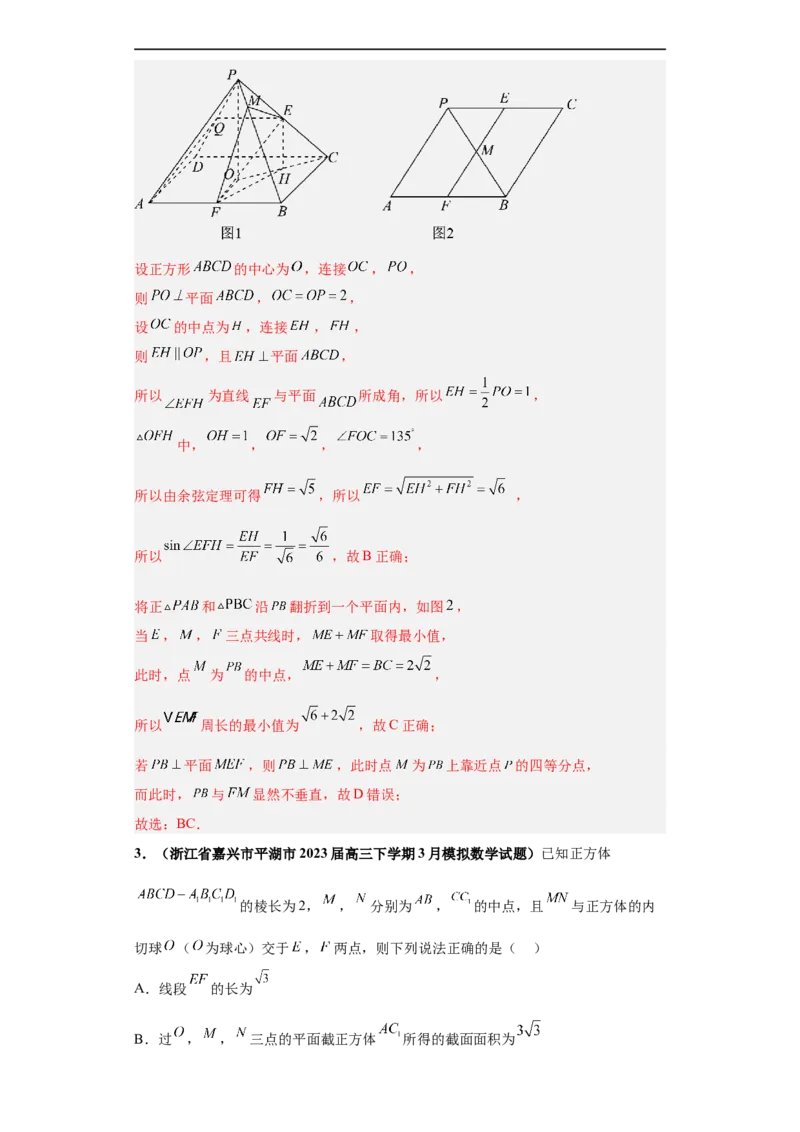 P
M
E
Q
D
C
O
H
A
F
B
图1
P
E
C
M
A
F
B
图2
设正方形ABCD的中心为O，连接OC，PO，
则PO⊥平面ABCD，OC=OP=2，
设OC的中点为H，连接EH，FH，
则EH∥OP，且EH⊥平面ABCD，
所以∠EFH为直线EF与平面ABCD所成角，所以EH=1/2PO=1，
△OFH中，OH=1，OF=√2，∠FOC=135°，
所以由余弦定理可得FH=√5，所以EF=√(EH²+FH²)=√6，
所以sin∠EFH=EH/EF=1/√6=√6/6，故B正确；
将正△PAB和△PBC沿PB翻折到一个平面内，如图2，
当E，M，F三点共线时，ME+MF取得最小值，
此时，点M为PB的中点，ME+MF=BC=2√2，
所以VEMF周长的最小值为√6+2√2，故C正确；
若PB⊥平面MEF，则PB⊥ME，此时点M为PB上靠近点P的四等分点，
而此时，PB与FM显然不垂直，故D错误；
故选：BC．
3．（浙江省嘉兴市平湖市2023届高三下学期3月模拟数学试题）已知正方体
ABCD−A₁B₁C₁D₁的棱长为2，M，N分别为AB，CC₁的中点，且MN与正方体的内
切球O（O为球心）交于E，F两点，则下列说法正确的是（ ）
A．线段EF的长为√3
B．过O，M，N三点的平面截正方体AC₁所得的截面面积为3√3